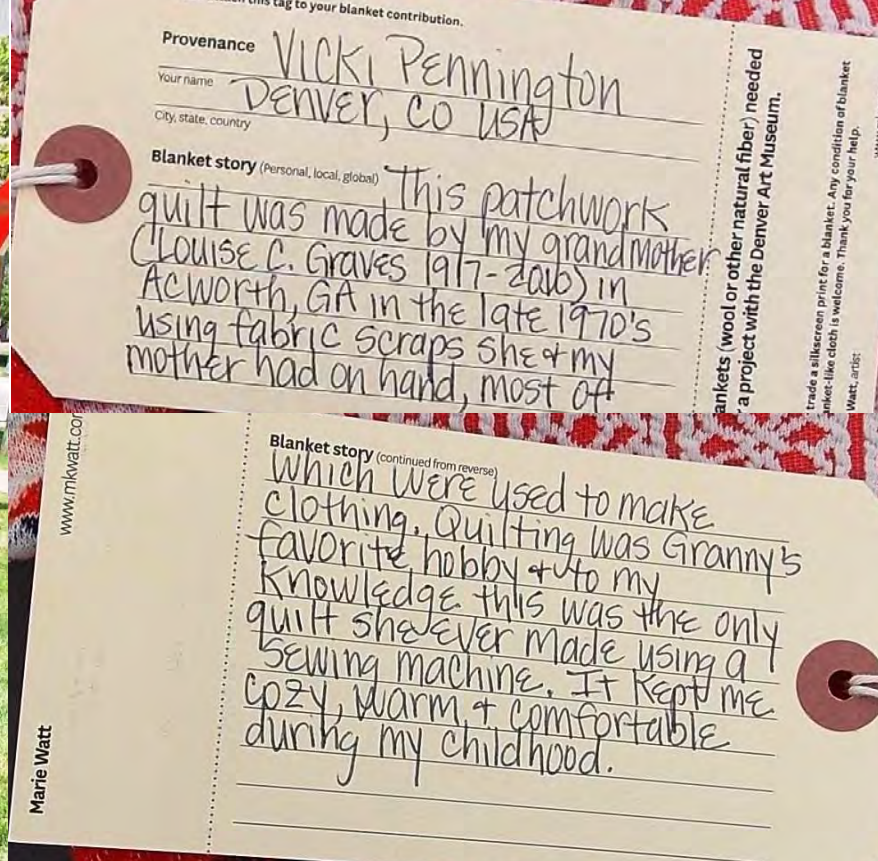 this tag to your blanket contribution.
Provenance VICKI PENNINGTON
Your name
DENVER, CO USA
City, state, country
Blanket story (Personal, local, global) This patchwork
quilt was made by my grandmother
(Louise C. Graves 1917-2016) in
Acworth, GA in the late 1970's
using fabric scraps she & my
mother had on hand, most of
ankets (wool or other natural fiber) needed
a project with the Denver Art Museum.
trade a silkscreen print for a blanket. Any condition of blanket
anket-like cloth is welcome. Thank you for your help.
Watt, artist
Blanket story (continued from reverse)
which were used to make
clothing. Quilting was Granny's
favorite hobby & to my
knowledge this was the only
quilt she ever made using a
sewing machine. It kept me
cozy, warm, & comfortable
during my childhood.
www.mkwatt.com
Marie Watt